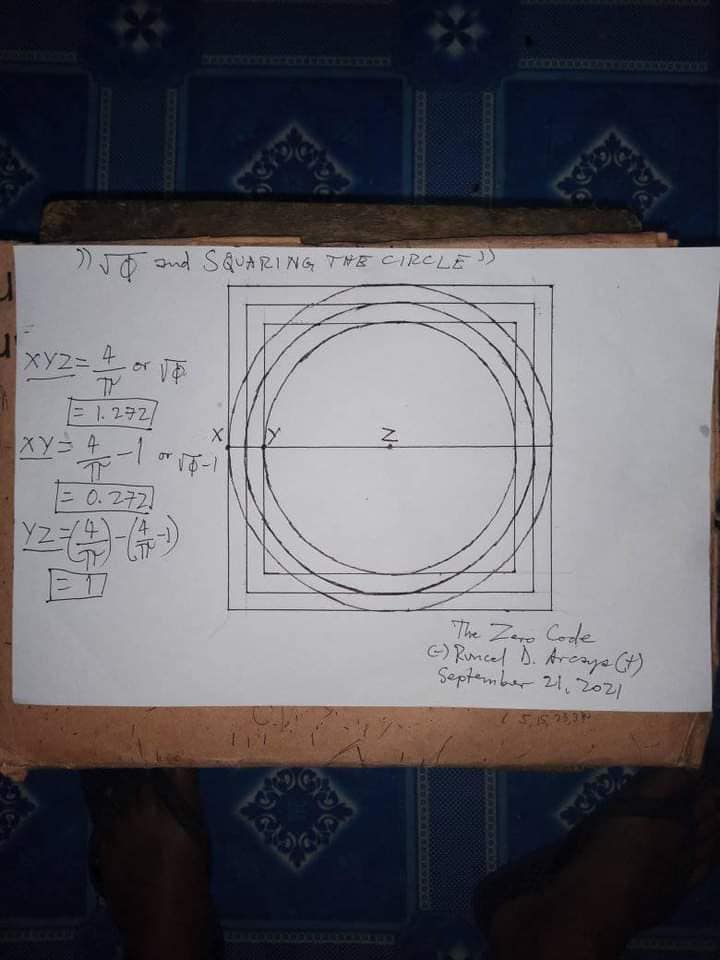 )) √φ and SQUARING THE CIRCLE ))
XYZ = 4/π or √φ
= 1.272
XY = 4/π - 1 or √φ-1
= 0.272
YZ = (4/π) - (4/π - 1)
= 1
X Y Z
The Zero Code
September 21, 2021